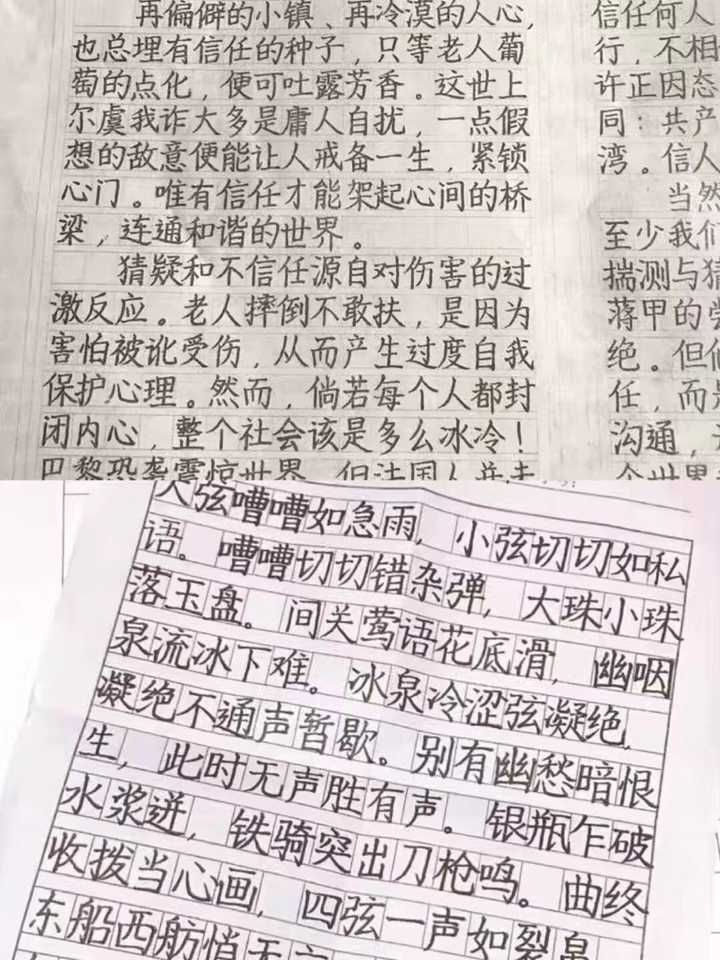 再偏僻的小镇、再冷漠的人心，
也总埋有信任的种子，只等老人葡
萄的点化，便可吐露芳香。这世上
尔虞我诈大多是庸人自扰，一点假
想的敌意便能让人戒备一生，紧锁
心门。唯有信任才能架起心间的桥
梁，连通和谐的世界。
猜疑和不信任源自对伤害的过
激反应。老人摔倒不敢扶，是因为
害怕被讹受伤，从而产生过度自我
保护心理。然而，倘若每个人都封
闭内心，整个社会该是多么冰冷！
巴黎恐袭震惊世界，但法国人并未
信任何人
行，不相
许正因态
同：共产
湾。信人
当然
至少我们
揣测与猜
蒋甲的尝
绝。但他
任，而是
沟通，
个世界
大弦嘈嘈如急雨，小弦切切如私
语。嘈嘈切切错杂弹，大珠小珠
落玉盘。间关莺语花底滑，幽咽
泉流冰下难。冰泉冷涩弦凝绝，
凝绝不通声暂歇。别有幽愁暗恨
生，此时无声胜有声。银瓶乍破
水浆迸，铁骑突出刀枪鸣。曲终
收拨当心画，四弦一声如裂帛。
东船西舫悄无言